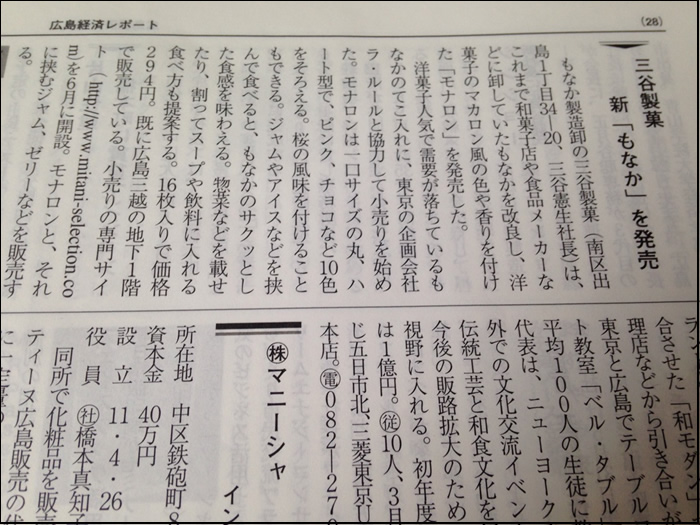 広島経済レポート
(28)
三谷製菓
新「もなか」を発売
もなか製造卸の三谷製菓（南区出
島1丁目34―20、三谷憲生社長）は、
これまで和菓子店や食品メーカーな
どに卸していたもなかを改良し、洋
菓子のマカロン風の色や香りを付け
た「モナロン」を発売した。
洋菓子人気で需要が落ちているも
なかのてこ入れに、東京の企画会社
ラ・ルールと協力して小売りを始め
た。モナロンは一口サイズの丸、ハ
ート型で、ピンク、チョコなど10色
をそろえる。桜の風味を付けること
もできる。ジャムやアイスなどを挟
んで食べると、もなかのサクッとし
た食感を味わえる。惣菜などを載せ
たり、割ってスープや飲料に入れる
食べ方も提案する。16枚入りで価格
294円。既に広島三越の地下1階
で販売している。小売りの専門サイ
ト（http://www.mitani-selection.co
m)を6月に開設。モナロンと、それ
に挟むジャム、ゼリーなどを販売す
る。
ラン
合させた「和モダン
理店などから引き合いが
東京と広島でテーブル
ト教室「ベル・タブル
平均100人の生徒に
代表は、ニューヨーク
外での文化交流イベン
伝統工芸と和食文化を
今後の販路拡大のため
視野に入れる。初年度
は1億円。㊒10人、3月
じ五日市北、三菱東京U
本店。㊋082―27
㈱マニーシャ
イン
所在地 中区鉄砲町8
資本金 40万円
設立 11・4・26
役員 ㊓橋本真知子
同所で化粧品を販売
ティーヌ広島販売の代